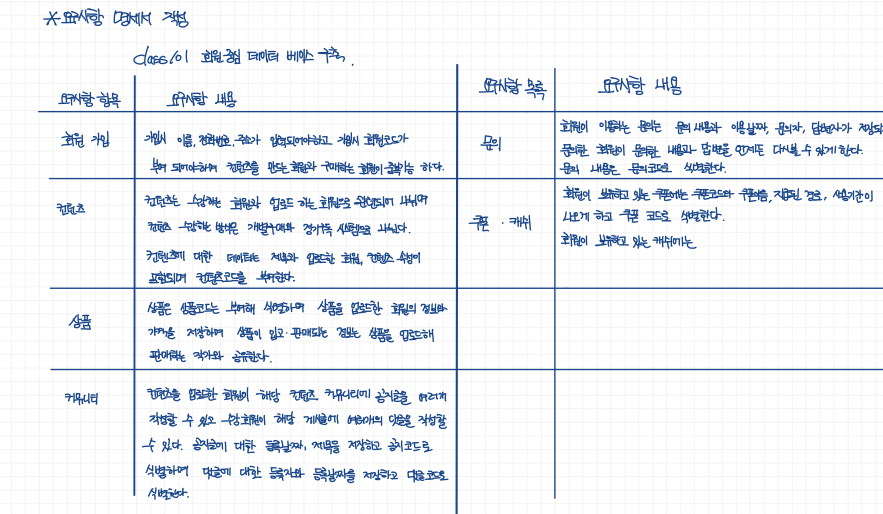 * 요구사항 명세서 작성
class101 회원중심 데이터 베이스 구축.
요구사항 항목
요구사항 내용
회원 가입
가입시 이름, 전화번호, 주소가 입력되어야하고 가입시 회원코드가
부여 되어야하며 컨텐츠를 만드는 회원와 구매하는 회원이 중복가능 하다.
컨텐츠
컨텐츠는 수강하는 회원와 업로드 하는 회원으로 관련되어 나뉘며
컨텐츠 수강하는 방법은 개별구매와 정기구독 시스템으로 나뉜다.
컨텐츠에 대한 데이터는 제목와 업로드한 회원, 컨텐츠 수정이
포함되며 컨텐츠코드를 부여한다.
상품
상품은 상품코드는 부여해 식별하며 상품을 업로드한 회원의 정보와
가격을 저장하며 상품이 입고·판매되는 정보는 상품을 업로드해
판매하는 작가와 공유한다.
커뮤니티
컨텐츠를 업로드한 회원이 해당 컨텐츠 커뮤니티에 공지글을 여러개
작성할 수 있고 수강회원이 해당 게시글에 여러개의 댓글을 작성할
수 있다. 공지글에 대한 등록날짜, 제목을 저장하고 공지코드로
식별하며 댓글에 대한 등록자와 등록날짜를 저장하고 댓글코드로
식별한다.
요구사항 목록
요구사항 내용
문의
회원이 이용하는 문의는 문의 내용과 이용날짜, 문의자, 답변자가 저장되
문의한 회원이 문의한 내용과 답변을 언제든 다시볼 수 있게 한다.
문의 내용은 문의코드로 식별한다.
쿠폰 · 캐쉬
회원이 보유하고 있는 쿠폰에는 쿠폰코드와 쿠폰이름, 지급된 경로, 사용기간이
나오게 하고 쿠폰 코드로 식별한다.
회원이 보유하고 있는 캐쉬에는